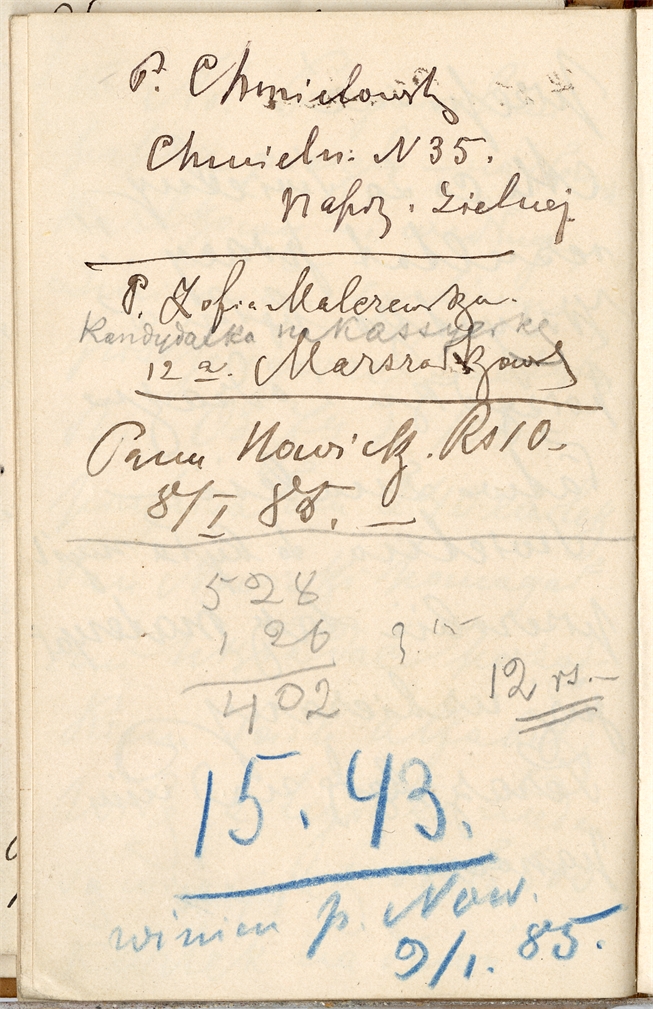 P. Chmielowsk
Chmieln: N 35.
Naprz. Zielnej
P. Zofia Malczewska.
Kandydatka na Kassyerkę
12 a. Marszałkows
Panu Nowick. Rs 10-
8/I 85. —
528
126
402
3.15
12 rs.—
15.43.
winien p. Now.
9/1. 85.